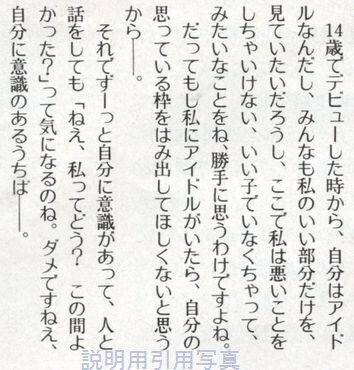 14歳でデビューした時から、自分はアイド
ルなんだし、みんなも私のいい部分だけを、
見ていたいだろうし、ここで私は悪いことを
しちゃいけない、いい子でいなくちゃって、
みたいなことをね、勝手に思うわけですよね。
だってもし私にアイドルがいたら、自分の
思っている枠をはみ出してほしくないと思う
から——。
それでずーっと自分に意識があって、人と
話をしても「ねえ、私ってどう？　この間よ
かった？」って気になるのね。ダメですねえ、
自分に意識のあるうちは——。
説明用引用写真